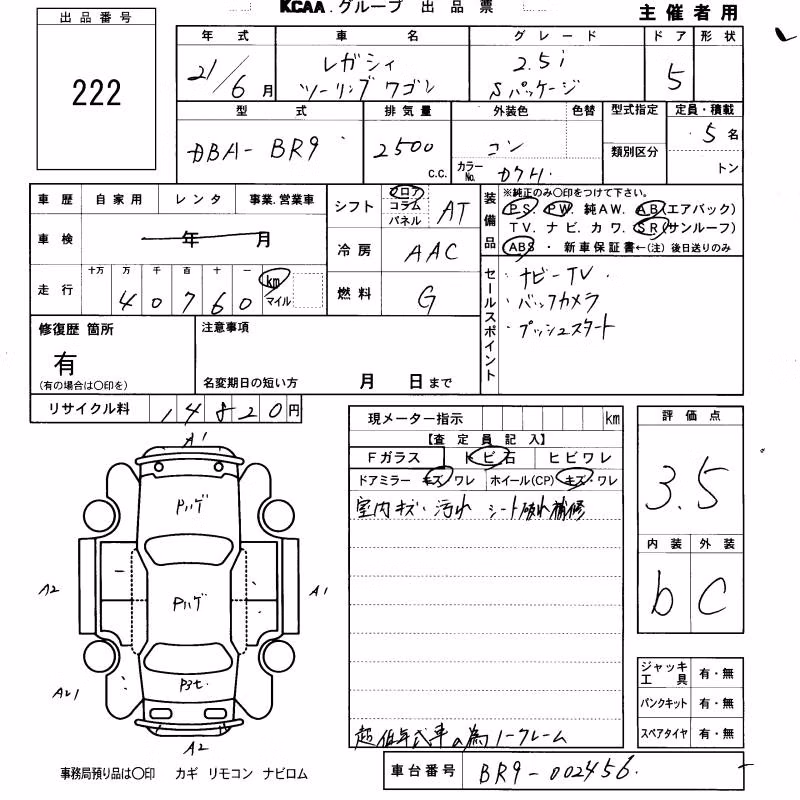 KCAA. グループ 出品票
主催者用
出品番号
222
年式 車名 グレード ドア 形状
21/6月 レガシィ ツーリングワゴン 2.5i Sパッケージ 5
型式 排気量 外装色 色替 型式指定 定員・積載
DBA- BR9 2500 c.c. コン 5名
カラーNo. 類別区分 トン
車歴 自家用 レンタ 事業.営業車
車検 年 月
走行 十万 万 千 百 十 一 km
40760 マイル
シフト フロア コラム パネル AT
冷房 AAC
燃料 G
装備品 ※純正のみ○印をつけて下さい。
P.S. PW. 純AW. AB(エアバック)
TV. ナビ. カワ. SR(サンルーフ)
ABS ・ 新車保証書←(注)後日送りのみ
セールスポイント
・ナビーTV
・バックカメラ
・プッシュスタート
修復歴 箇所
有
(有の場合は○印を)
注意事項
名変期日の短い方 月 日まで
リサイクル料 14820円
現メーター指示 km
【査定員記入】
Fガラス トビ石 ヒビワレ
ドアミラー キズ・ワレ ホイール(CP) キズ・ワレ
室内キズ・汚れ シート破れ補修
超低年式車の為ノークレーム
評価点
3.5
内装 外装
b C
ジャッキ工具 有・無
パンクキット 有・無
スペアタイヤ 有・無
車台番号 BR9-002456
A1
Pハゲ
A2
Pハゲ
A1
P3t.
A2
事務局預り品は○印 カギ リモコン ナビロム